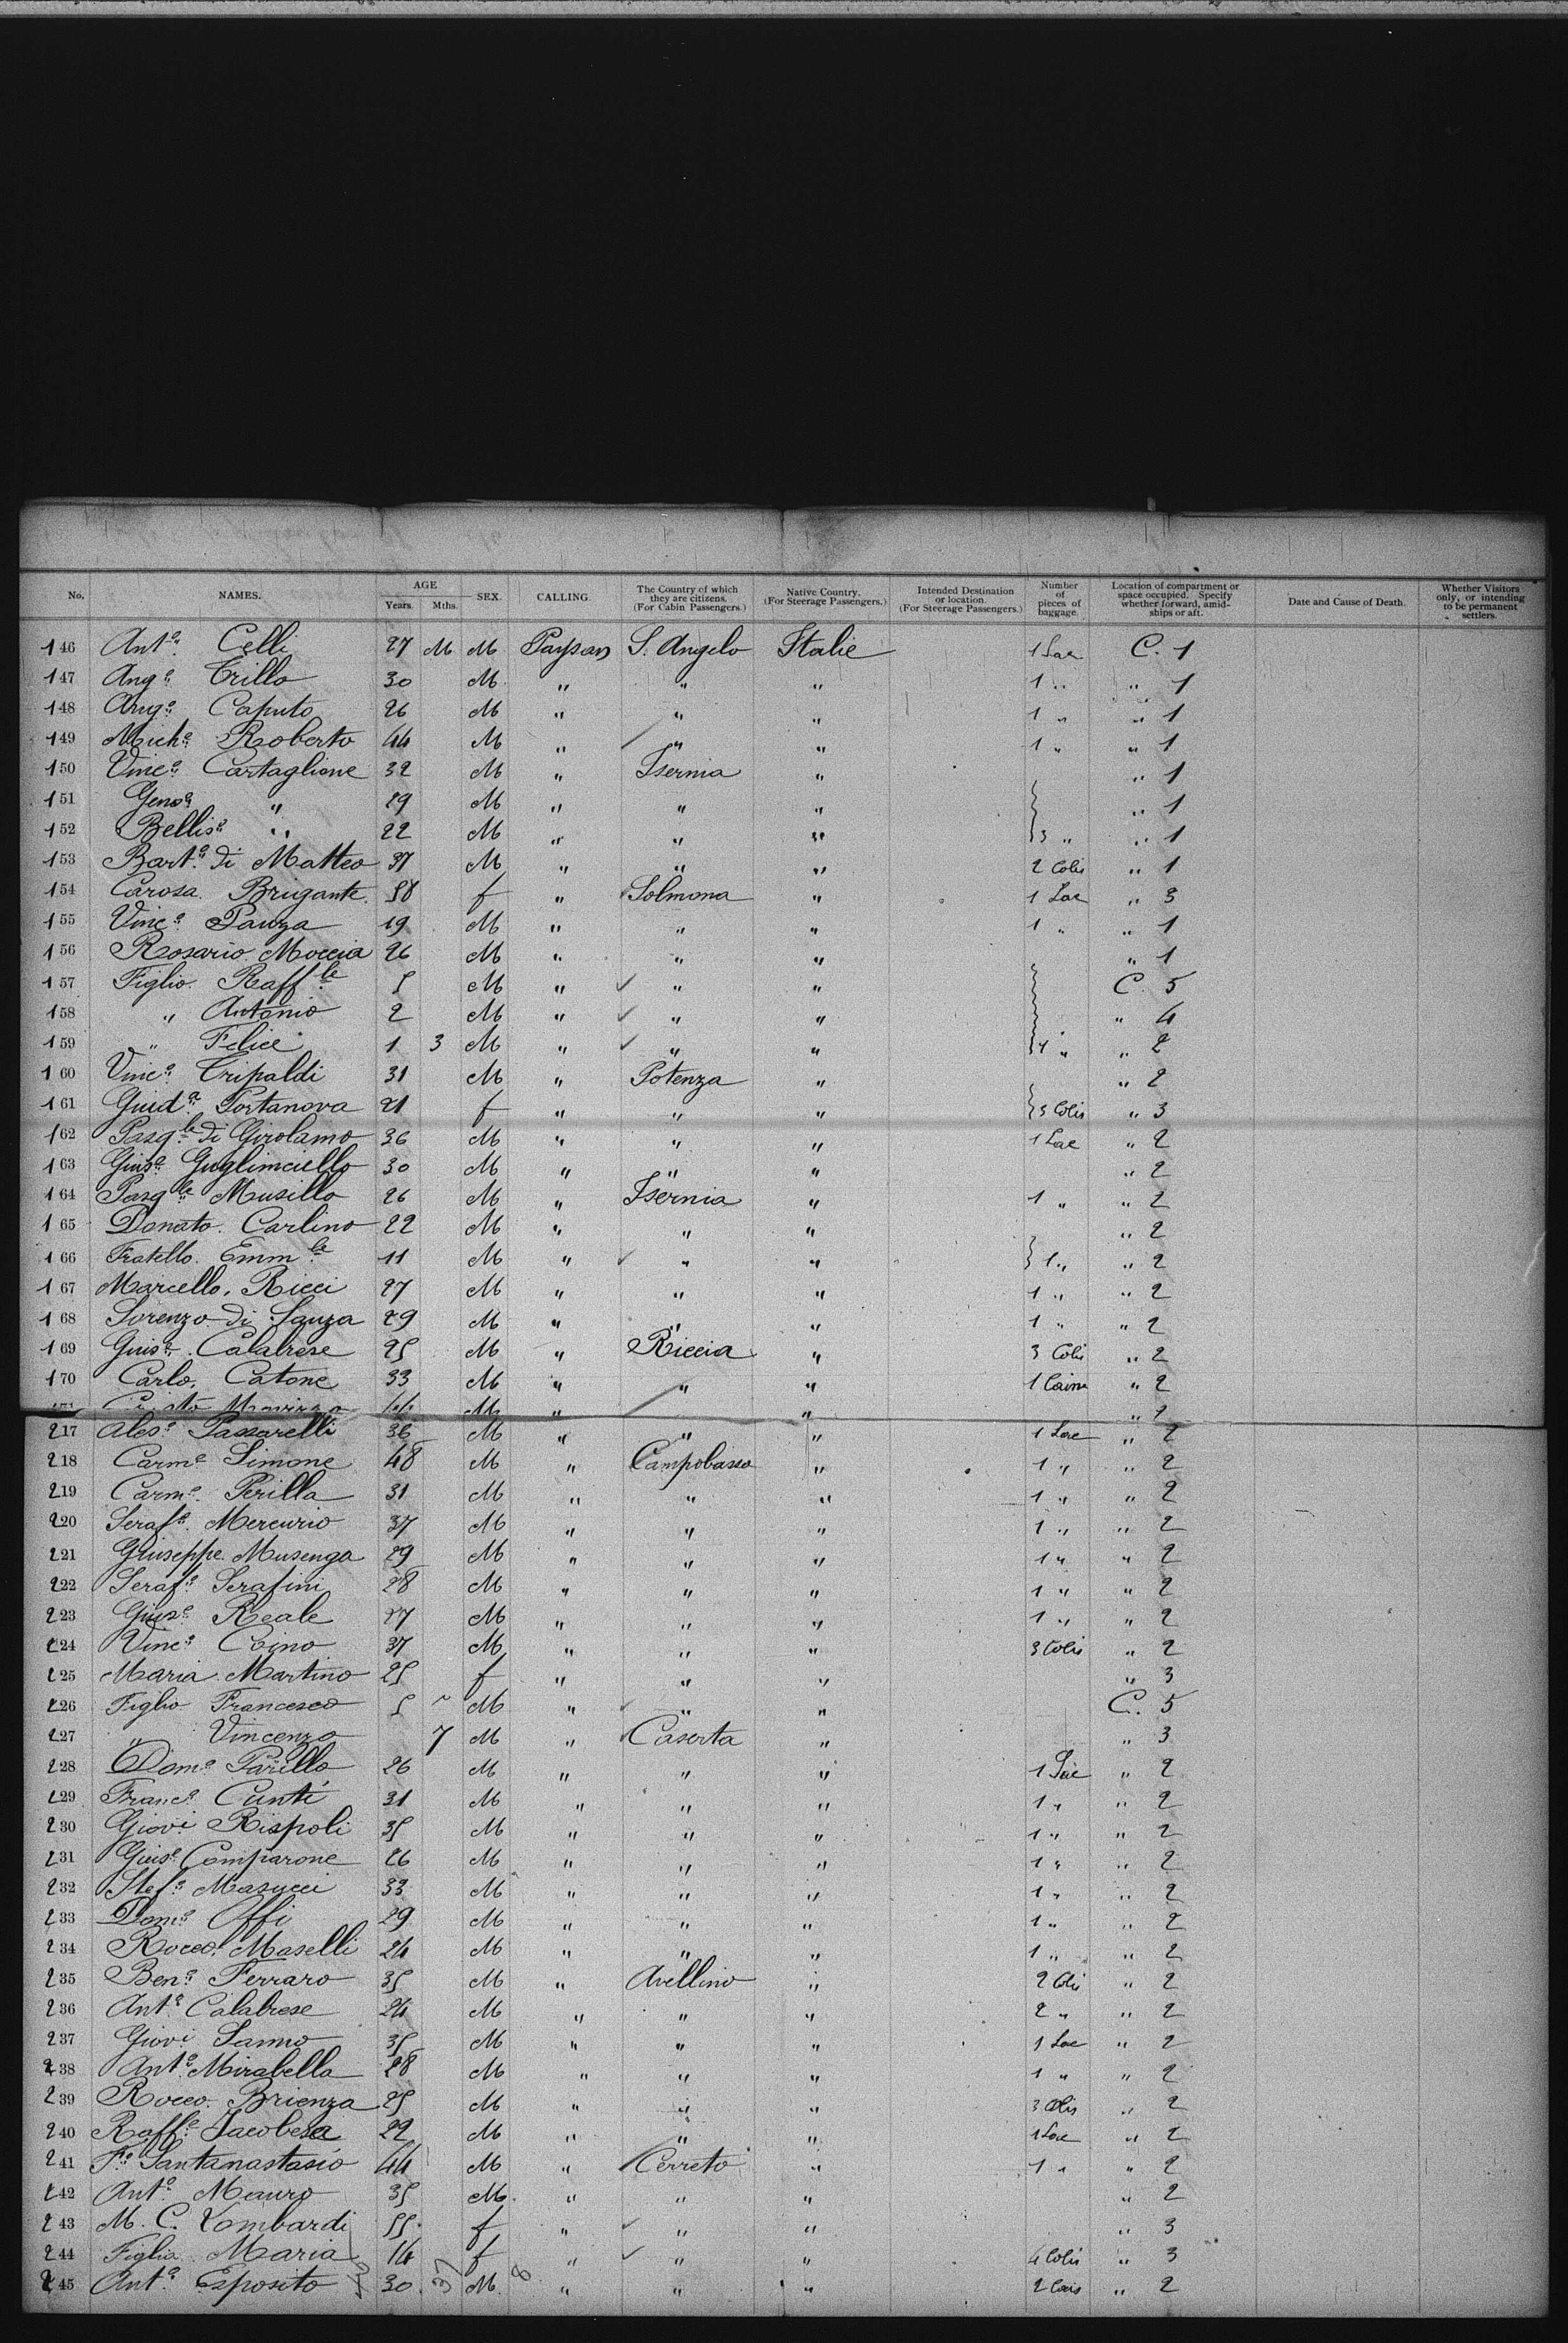 No. NAMES. AGE Years. Mths. SEX. CALLING. The Country of which they are citizens. (For Cabin Passengers.) Native Country. (For Steerage Passengers.) Intended Destination or location. (For Steerage Passengers.) Number of pieces of baggage Location of compartment or space occupied. Specify whether forward, amidships or aft. Date and Cause of Death. Whether Visitors only, or intending to be permanent settlers.
146 Anto. Celli 27 M M Paysan S. Angelo Italie 1 Sac C. 1
147 Ango. Trillo 30 M " " " 1 " " 1
148 Ango. Caputo 26 M " " " 1 " " 1
149 Miche. Roberto 44 M " " " 1 " " 1
150 Vinco. Cartaglione 32 M " Isernia " " 1
151 Genoo. " 29 M " " " " 1
152 Belliso. " 22 M " " " 3 " " 1
153 Barto. di Matteo 37 M " " " 2 Colis " 1
154 Carosa. Brigante 58 f " Solmona " 1 Sac " 3
155 Vinco. Panza 19 M " " " 1 " " 1
156 Rosario. Moccia 26 M " " " " 1
157 Figlio. Raffle 5 M " " " C. 5
158 " Antonio 2 M " " " " 4
159 " Felice 1 3 M " " " 4 " " 2
160 Vinco. Tripaldi 31 M " Potenza " " 2
161 Guida. Portanova 21 f " " " 3 Colis " 3
162 Pasqle di Girolamo 36 M " " " 1 Sac " 2
163 Guise. Guglimciello 30 M " " " " 2
164 Pasqle Musillo 26 M " Isernia " 1 " " 2
165 Donato. Carlino 22 M " " " " 2
166 Fratello. Emmle 11 M " " " 1 " " 2
167 Marcello. Ricci 27 M " " " 1 " " 2
168 Lorenzo di Sauza 29 M " " " 1 " " 2
169 Guise. Calabrese 25 M " Riccia " 3 Colis " 2
170 Carlo. Catone 33 M " " " 1 " 2
44 M " " "
217 Aleso. Passarelli 36 M " " " 1 Sac " 2
218 Carme Simone 48 M " Campobasso " 1 " " 2
219 Carme. Perilla 31 M " " " 1 " " 2
220 Serafo. Mercurio 37 M " " " 1 " " 2
221 Giuseppe Musenga 29 M " " " 1 " " 2
222 Serafo. Serafini 28 M " " " 1 " " 2
223 Giuse. Reale 27 M " " " 1 " " 2
224 Vinco. Coino 37 M " " " 3 Colis " 2
225 Maria Martino 25 f " " " " 3
226 Figlio Francesco 5 M " " " C. 5
227 " Vincenzo 7 M " Caserta " " 3
228 Domo Parillo 26 M " " " 1 Sac " 2
229 Franco. Cunti 31 M " " " 1 " " 2
230 Giovi Rispoli 35 M " " " 1 " " 2
231 Guise. Comparone 26 M " " " 1 " " 2
232 Stefo. Masucci 33 M " " " 1 " " 2
233 Domo. Offi 29 M " " " 1 " " 2
234 Rocco. Maselli 24 M " " " 1 " " 2
235 Beno. Ferraro 35 M " Avellino " 2 Colis " 2
236 Anto. Calabrese 24 M " " " 2 " " 2
237 Giovi Sanno 35 M " " " 1 Sac " 2
238 Anto. Mirabella 28 M " " " 1 " " 2
239 Rocco. Brienza 25 M " " " 3 Colis " 2
240 Raffe Jacobesa 22 M " " " 1 Sac " 2
241 Fo. Santanastasio 44 M " Cerreto " 1 " " 2
242 Anto. Mauro 35 M " " " " 2
243 M. C. Lombardi 55 f " " " " 3
244 Figlia Maria 14 f " " " 4 Colis " 3
245 Anto. Esposito 30 M " " " 2 Colis " 2
37 8